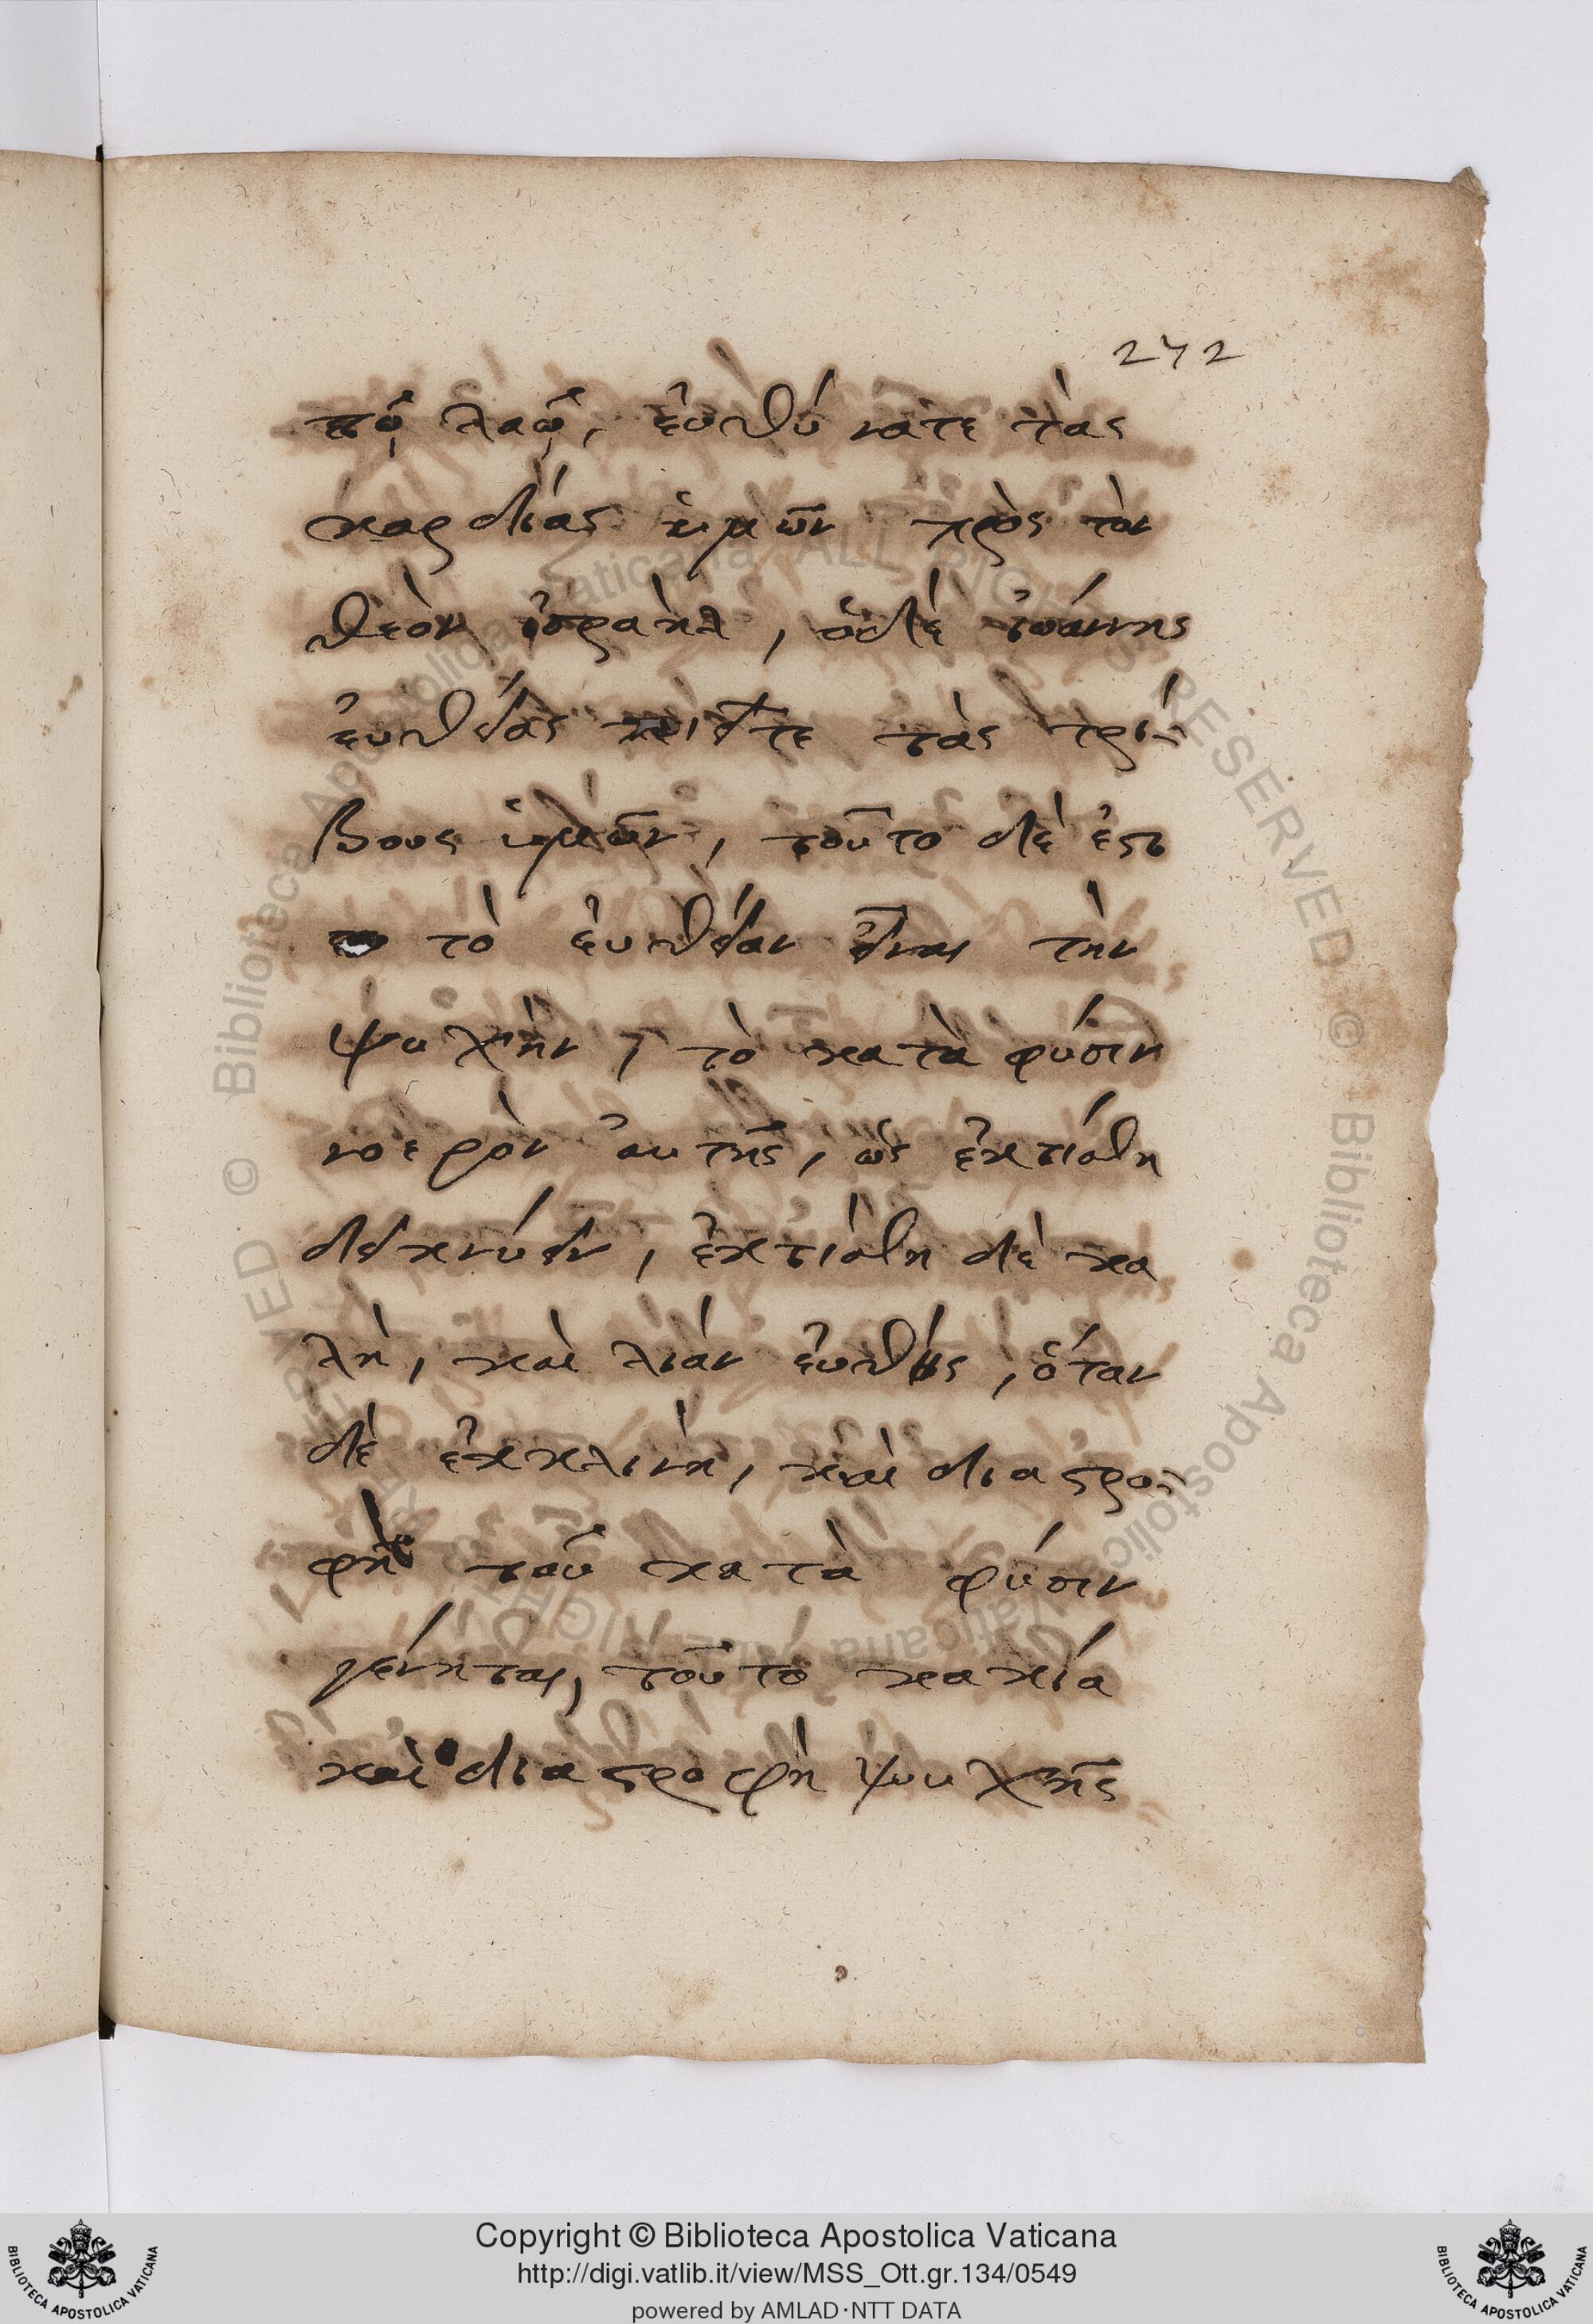 272
τῷ λαῷ, ἐυθύνατε τὰς
καρδίας ὑμῶν πρὸς τὸν
θεὸν ἰσραὴλ, ὁδὲ ἰωάννης
ἐυθείας ποιεῖτε τὰς τρί-
βους ὑμῶν, τοῦτο δὲ ἐστ
τὸ ἐυθεῖαν εἶναι τὴν
ψυχὴν, τὸ κατὰ φύσιν
νοερὸν ἀυτῆς, ὡς ἐκτίσθη
δεικνύειν, ἐκτίσθη δὲ κα
λὴ, καὶ λίαν ἐυθὴς, ὅταν
δὲ ἐκκλινὴ, καὶ διαστρο-
φὴ τοῦ κατὰ φύσιν
γένηται, τοῦτο κακία
καὶ διαστροφὴ ψυχῆς
Copyright © Biblioteca Apostolica Vaticana
http://digi.vatlib.it/view/MSS_Ott.gr.134/0549
powered by AMLAD·NTT DATA